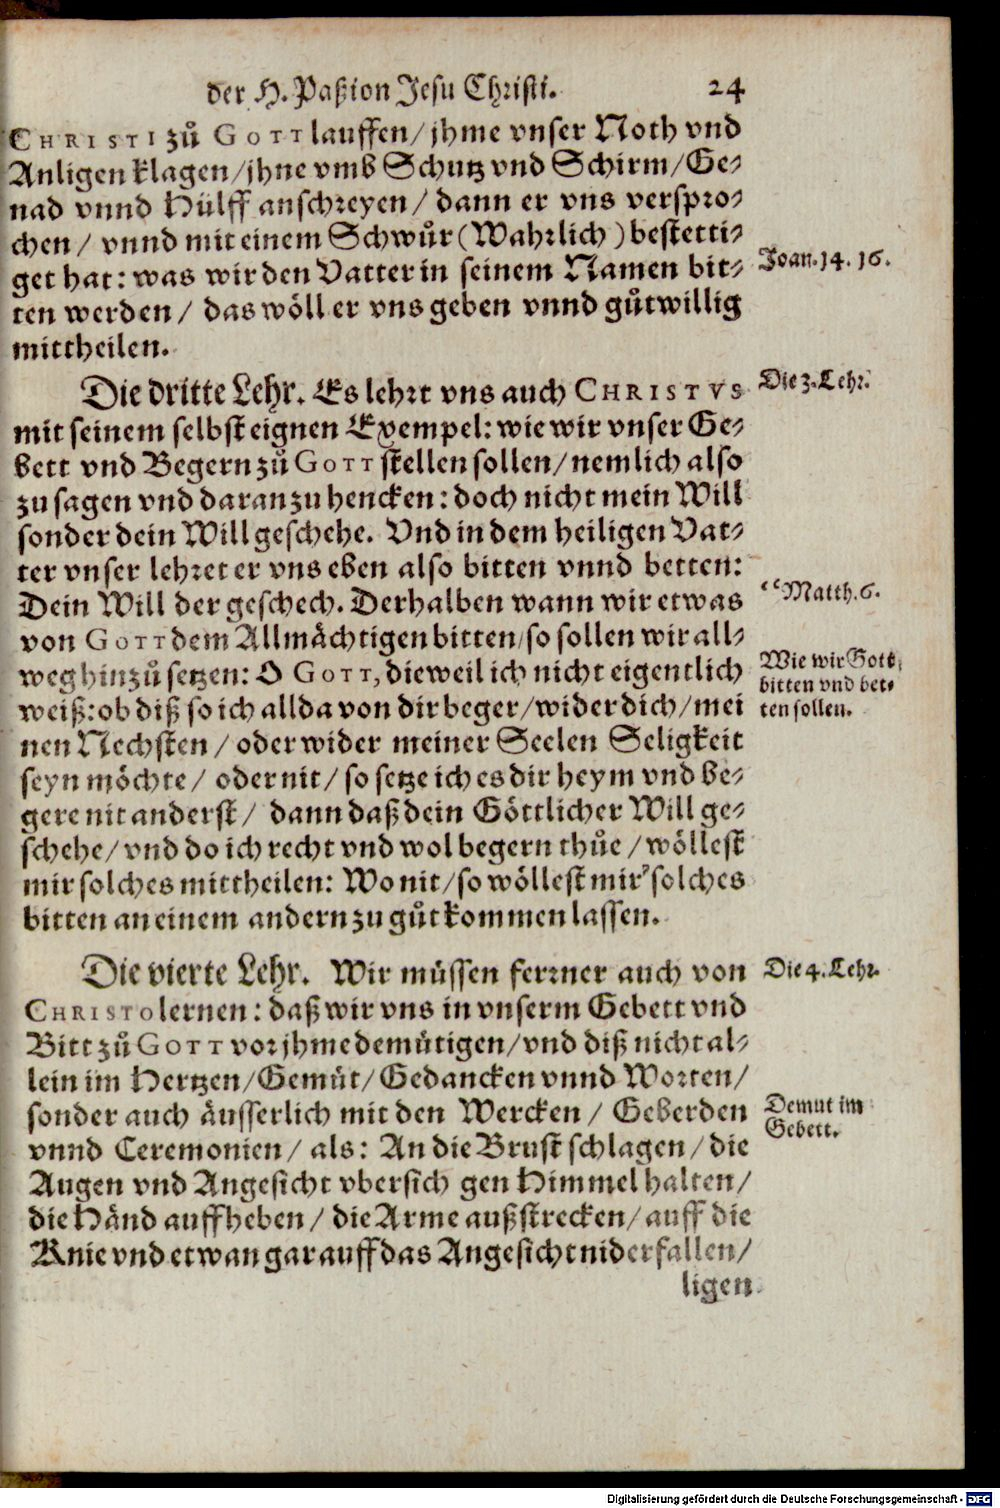 der H. Paßion Jesu Christi. 24
CHRISTI zů GOTT lauffen/ jhme vnser Noth vnd
Anligen klagen/ jhne vmb Schutz vnd Schirm/ Ge-
nad vnnd Hülff anschreyen/ dann er vns verspro-
chen/ vnnd mit einem Schwůr (Wahrlich) bestetti-
get hat: was wir den Vatter in seinem Namen bit-
Joan. 14. 16.
ten werden/ das wöll er vns geben vnnd gůtwillig
mittheilen.
Die dritte Lehr. Es lehrt vns auch CHRISTVS
Die 3. Lehr.
mit seinem selbst eignen Exempel: wie wir vnser Ge-
bett vnd Begern zů GOTT stellen sollen/ nemlich also
zu sagen vnd daran zu hencken: doch nicht mein Will
sonder dein Will geschehe. Vnd in dem heiligen Vat-
ter vnser lehret er vns eben also bitten vnnd betten:
Dein Will der geschech. Derhalben wann wir etwas
"Matth. 6.
von GOTT dem Allmächtigen bitten/ so sollen wir all-
weg hinzů setzen: O GOTT, dieweil ich nicht eigentlich
Wie wir Gott
bitten vnd bet-
ten sollen.
weiß: ob diß so ich allda von dir beger/ wider dich/ mei
nen Nechsten/ oder wider meiner Seelen Seligkeit
seyn möchte/ oder nit/ so setze ich es dir heym vnd be-
gere nit anderst/ dann daß dein Göttlicher Will ge-
schehe/ vnd do ich recht vnd wol begern thůe/ wöllest
mir solches mittheilen: Wo nit/ so wöllest mir solches
bitten an einem andern zu gůt kommen lassen.
Die vierte Lehr. Wir müssen ferrner auch von
Die 4. Lehr.
CHRISTO lernen: daß wir vns in vnserm Gebett vnd
Bitt zů GOTT vor jhme demütigen/ vnd diß nicht al-
lein im Hertzen/ Gemüt/ Gedancken vnnd Worten/
sonder auch äusserlich mit den Wercken/ Geberden
Demut im
Gebett.
vnnd Ceremonien/ als: An die Brust schlagen/ die
Augen vnd Angesicht vbersich gen Himmel halten/
die Händ auffheben/ die Arme außstrecken/ auff die
Knie vnd etwan gar auff das Angesicht niderfallen/
ligen
Digitalisierung gefördert durch die Deutsche Forschungsgemeinschaft - DFG